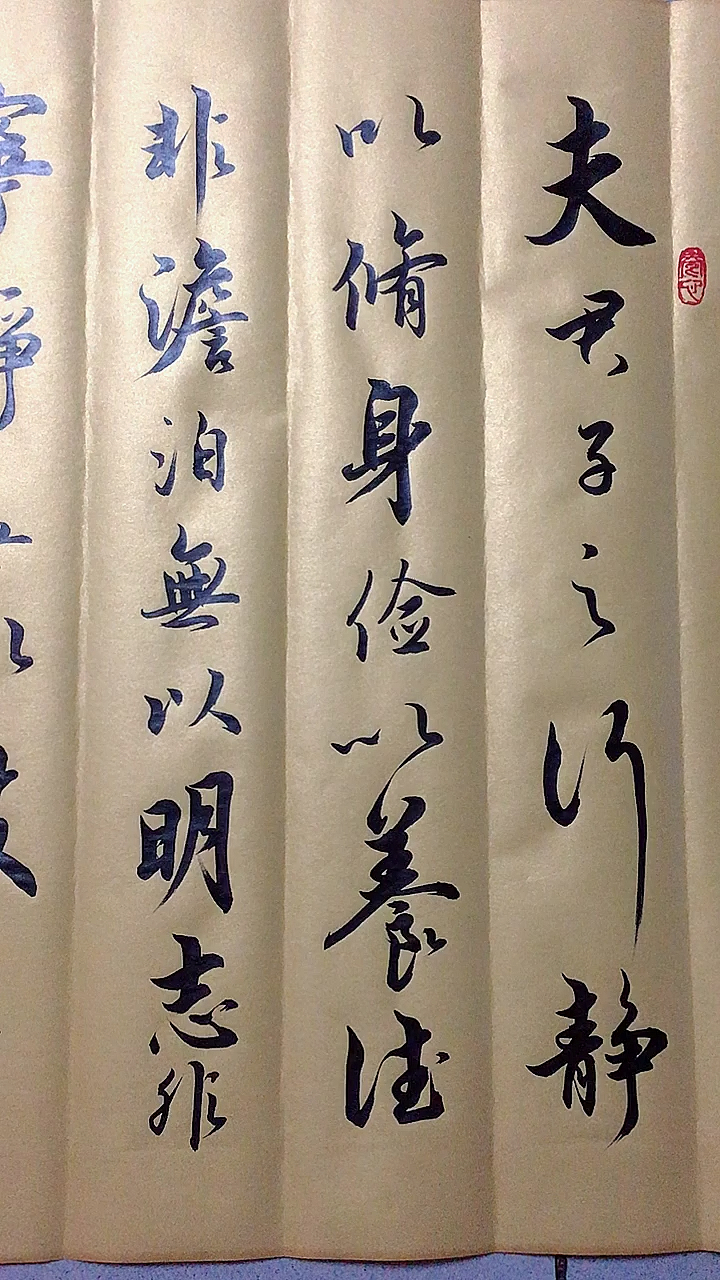 夫君子之行静
以脩身俭以養德
非澹泊無以明志非
寧静無以致